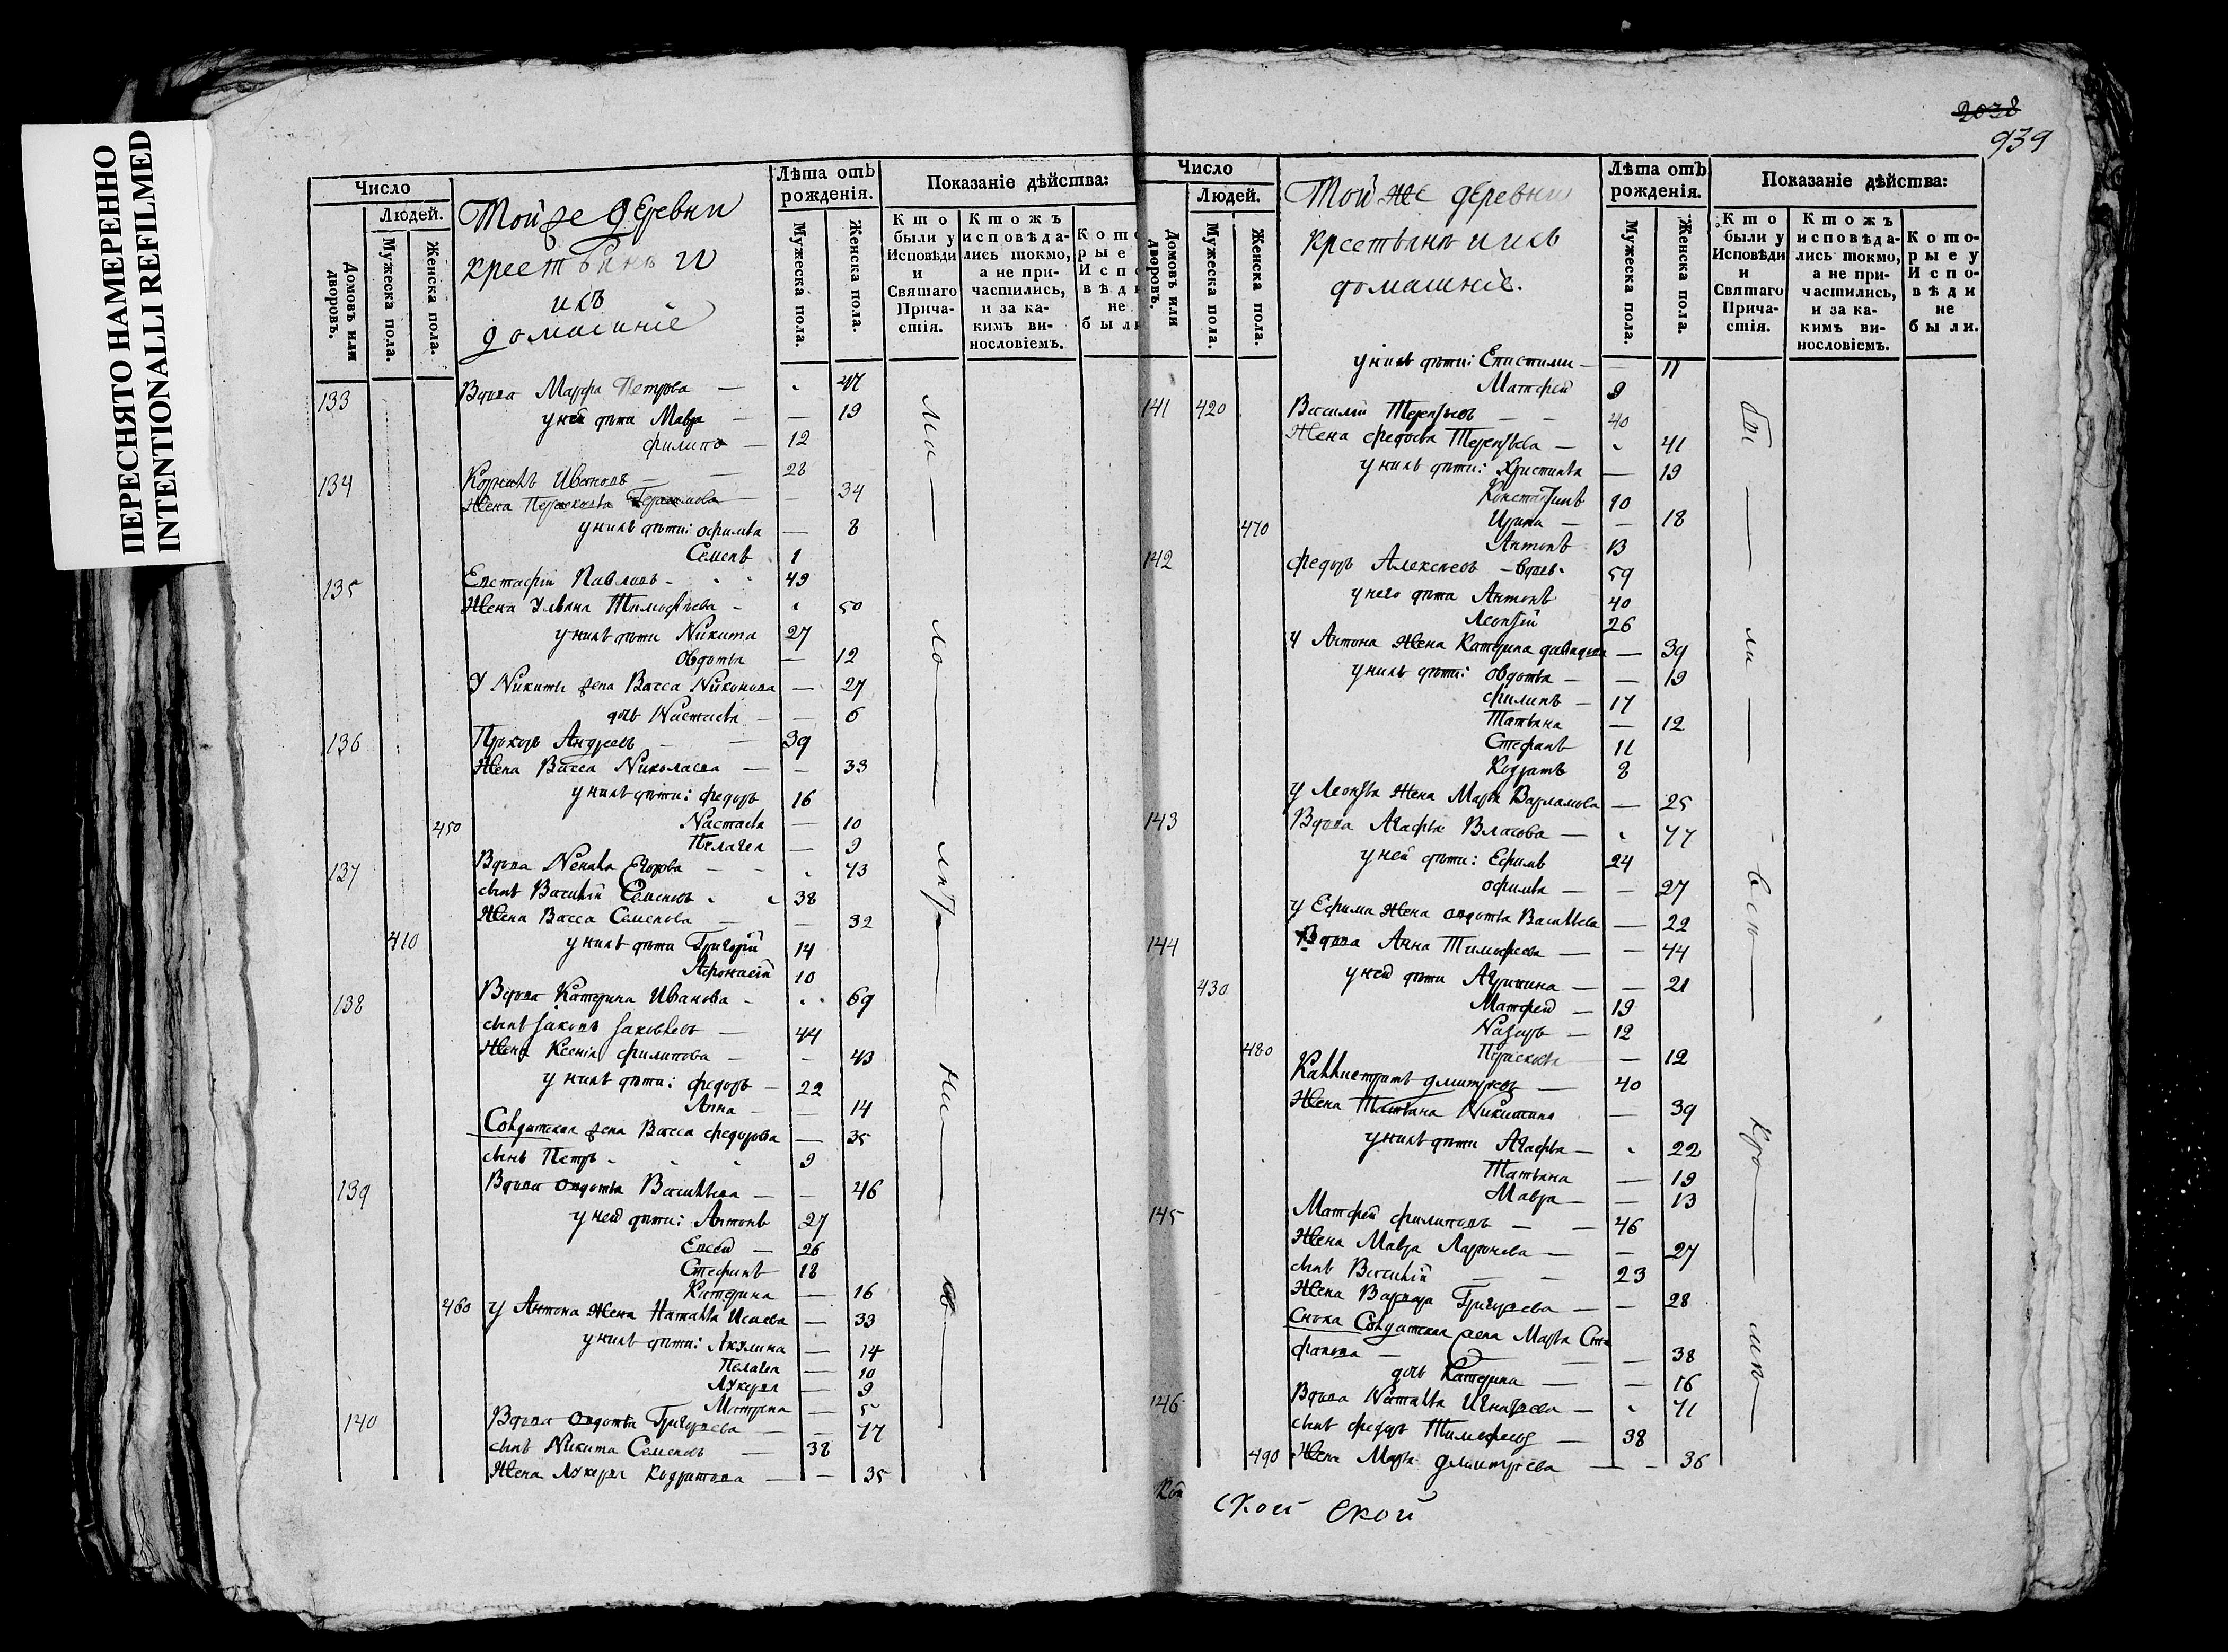 ПЕРЕСНЯТО НАМЕРЕННО
INTENTIONALLI REFILMED
2038
939
Число
Людей.
Домовъ или дворовъ.
Мужеска пола.
Женска пола.
Той же деревни
крестьянъ и
ихъ
домашніе
Лѣта отъ рожденія.
Мужеска пола.
Женска пола.
Показаніе дѣйства:
Кто были у Исповѣди и Святаго Причастія.
Ктожъ исповѣдались токмо, а не причастились, и за какимъ винословіемъ.
133 Вдова Марфа Петрова — 47
у ней дѣти Мавра — 19
Филипъ — 12
134 Корнилъ Ивановъ — 28
Жена Перасковья — 34
у нихъ дѣти: Офимья — 8
Семенъ 1
135 Евстафій Павловъ - 49
Жена Ульяна Тимофѣева - 50
у нихъ дѣти Никита 27
Овдотья — 12
У Никиты жена Васса Никонова — 27
дочь Настасья — 6
136 Прохоръ Андреевъ — 39
Жена Васса Николаева — 33
у нихъ дѣти: Федоръ 16
450 Настасья — 10
Пелагея — 9
137 Вдова Ненила Егорова — 73
сынъ Василій Семеновъ 38
Жена Васса Семенова — 32
410 у нихъ дѣти Григорій 14
Афонасій 10
138 Вдова Катерина Иванова - 69
сынъ Iаковъ Iаковлевъ — 44
Жена Ксенія Филипова — 43
у нихъ дѣти: Федоръ — 22
Анна — 14
Солдатская жена Васса Федорова — 35
сынъ Петръ 9
139 Вдова Овдотья Васильева — 46
у ней дѣти: Антонъ 27
Евсей — 26
Стефанъ 18
Катерина — 16
460 У Антона жена Наталья Исаева — 33
у нихъ дѣти: Акулина — 14
Пелагея — 10
Лукерья — 9
Матрена — 5
140 Вдова Овдотья Григорьева — 77
сынъ Никита Семеновъ — 38
Жена Лукерья Кодратова — 35
Число
Людей.
Домовъ или дворовъ.
Мужеска пола.
Женска пола.
Той же деревни
крестьянъ и ихъ
домашніе.
Лѣта отъ рожденія.
Мужеска пола.
Женска пола.
Показаніе дѣйства:
Кто были у Исповѣди и Святаго Причастія.
Ктожъ исповѣдались токмо, а не причастились, и за какимъ винословіемъ.
Которые у Исповѣди не были.
у нихъ дѣти: Епистими — 11
Матфей 9
141 420 Василій Терентьевъ — 40
Жена Федосья Терентьева — 41
у нихъ дѣти: Христинья — 19
Константинъ 10
470 Ирина — 18
Антонъ 13
142 Федоръ Алексеевъ — вдовъ 59
у него дѣти Антонъ 40
Леонтій 26
У Антона жена Катерина Давыдова — 39
у нихъ дѣти: Овдотья — 19
Филипъ — 17
Татьяна — 12
Стефанъ 11
Кодратъ 8
У Леонтья жена Марья Варламова — 25
143 Вдова Агафья Власова — 77
у ней дѣти: Ефимъ 24
Офимья — 27
У Ефима жена Овдотья Васильева — 22
144 Вдова Анна Тимофеева — 44
у ней дѣти Агрипина — 21
430 Матфей — 19
Назаръ — 12
480 Прасковья — 12
Каллистратъ Дмитреевъ — 40
Жена Татьяна Никитина — 39
у нихъ дѣти Агафья — 22
Татьяна — 19
Мавра — 13
145 Матфей Филиповъ — 46
Жена Мавра Ларионова — 27
сынъ Василій — 23
Жена Варвара Григорьева — 28
Сноха Солдатская жена Марья Сте-
фанова — 38
дочь Катерина — 16
146 Вдова Наталья Игнатьева — 71
сынъ Федоръ Тимофеевъ — 38
490 Жена Марья Дмитреева — 36
ской ской